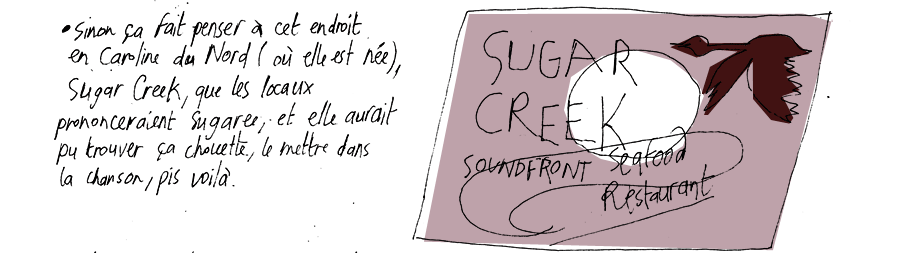 • Sinon ça fait penser à cet endroit
en Caroline du Nord (où elle est née),
Sugar Creek, que les locaux
prononceraient Sugaree, et elle aurait
pu trouver ça chouette, le mettre dans
la chanson, pis voilà.
SUGAR
CREEK
SOUNDFRONT Seafood
Restaurant